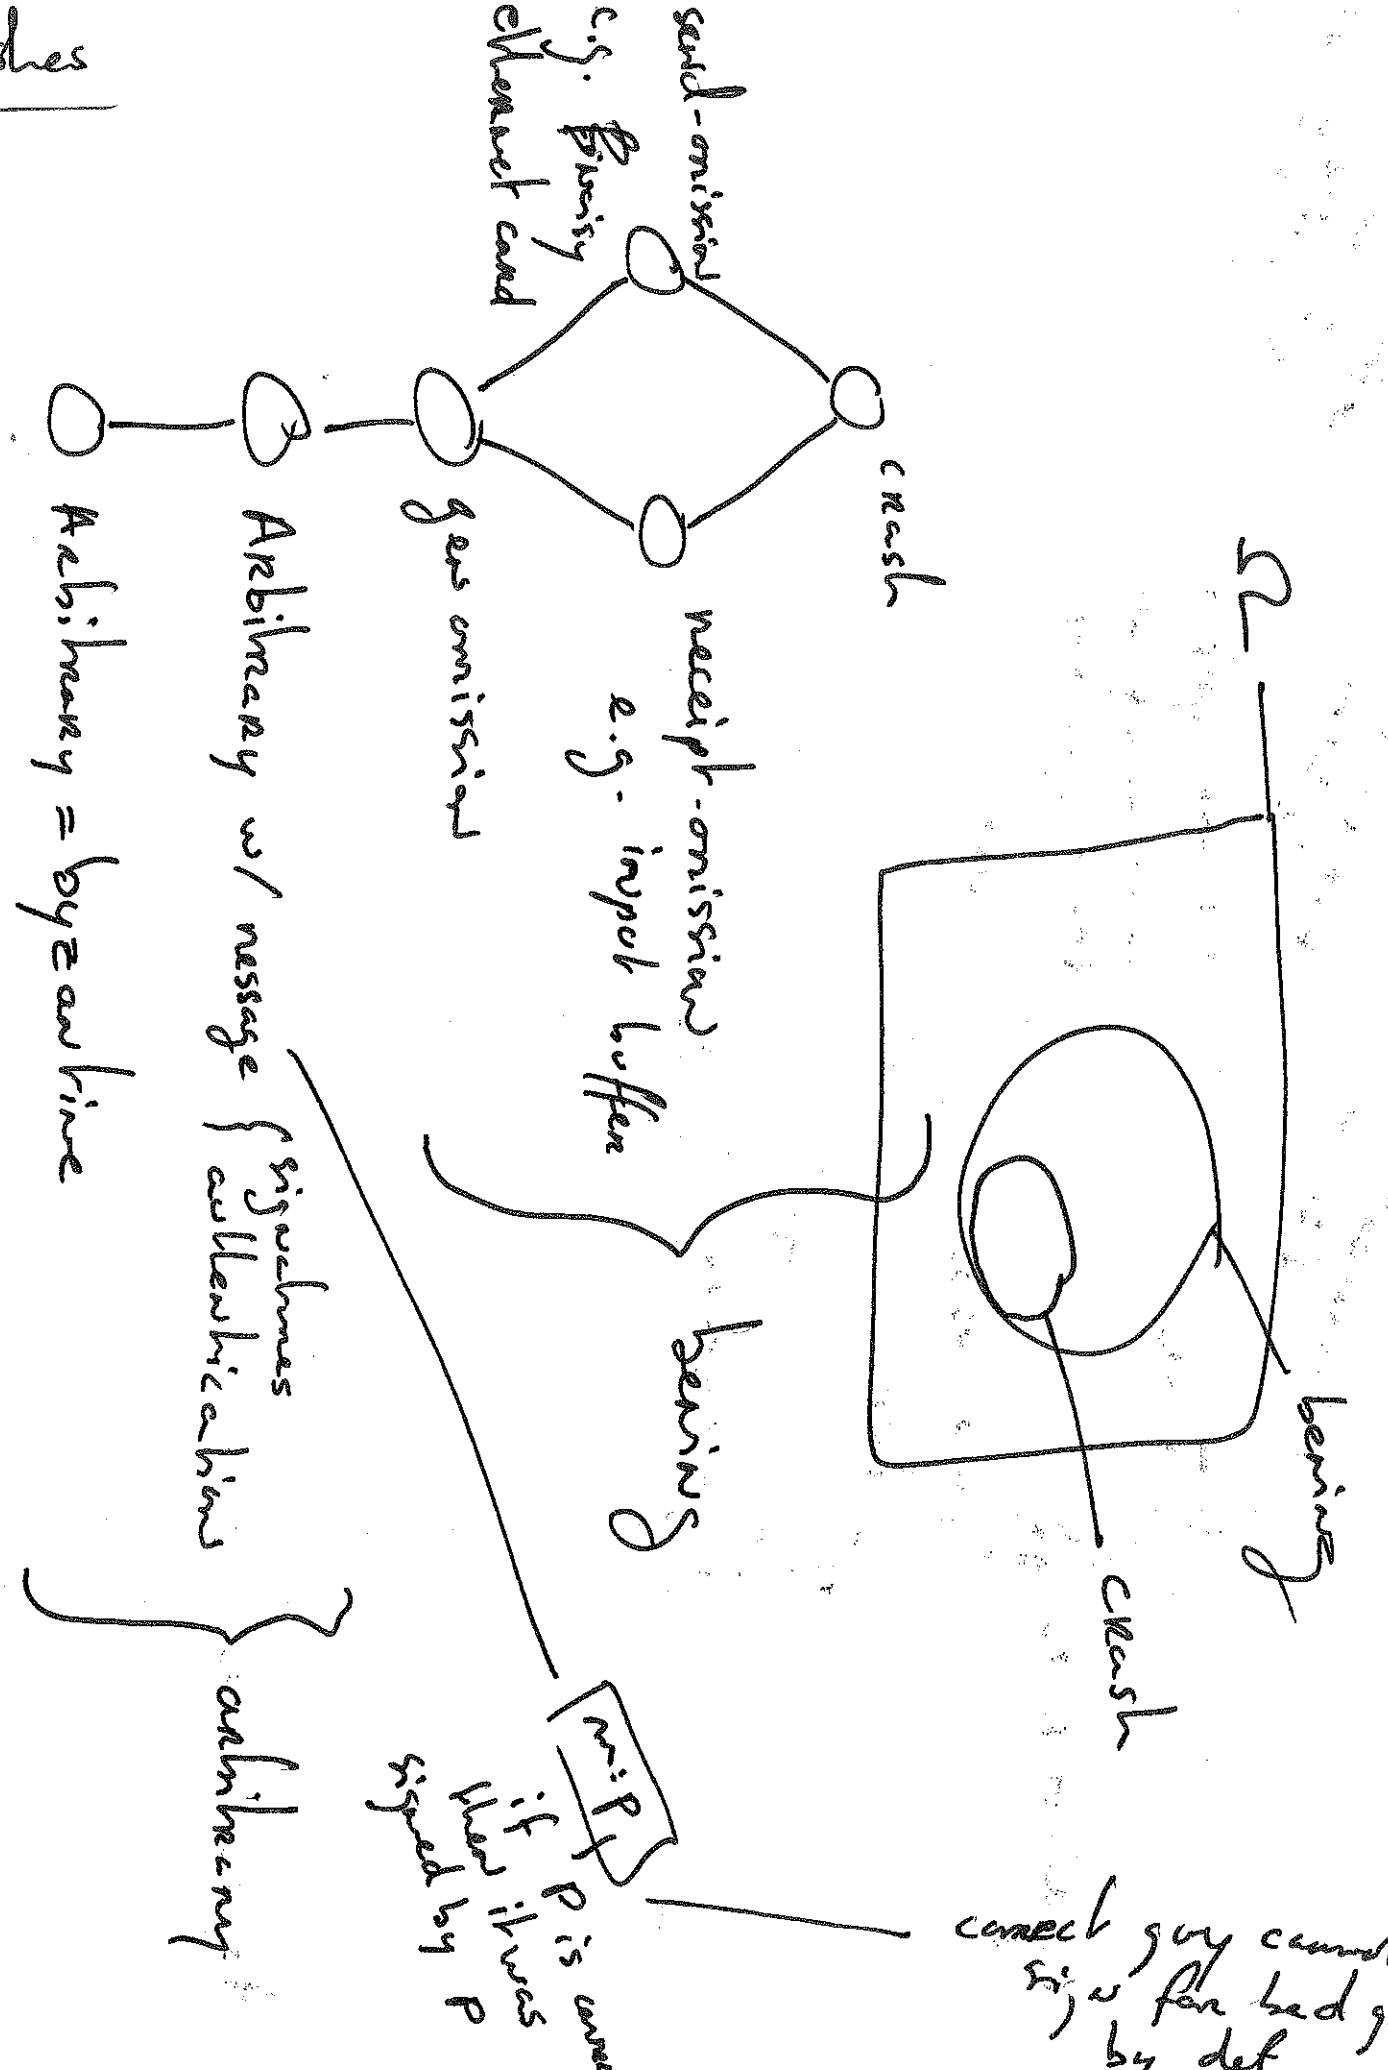 Ω
benign
crash
crash
send-omission
e.g. noisy
ethernet card
receipt-omission
e.g. input buffer
gen omission
benign
Arbitrary w/ message { signatures
authentication
Arbitrary = byzantine
arbitrary
m:p
if p is
then it was
signed by p
correct guy
sign for bad
by def